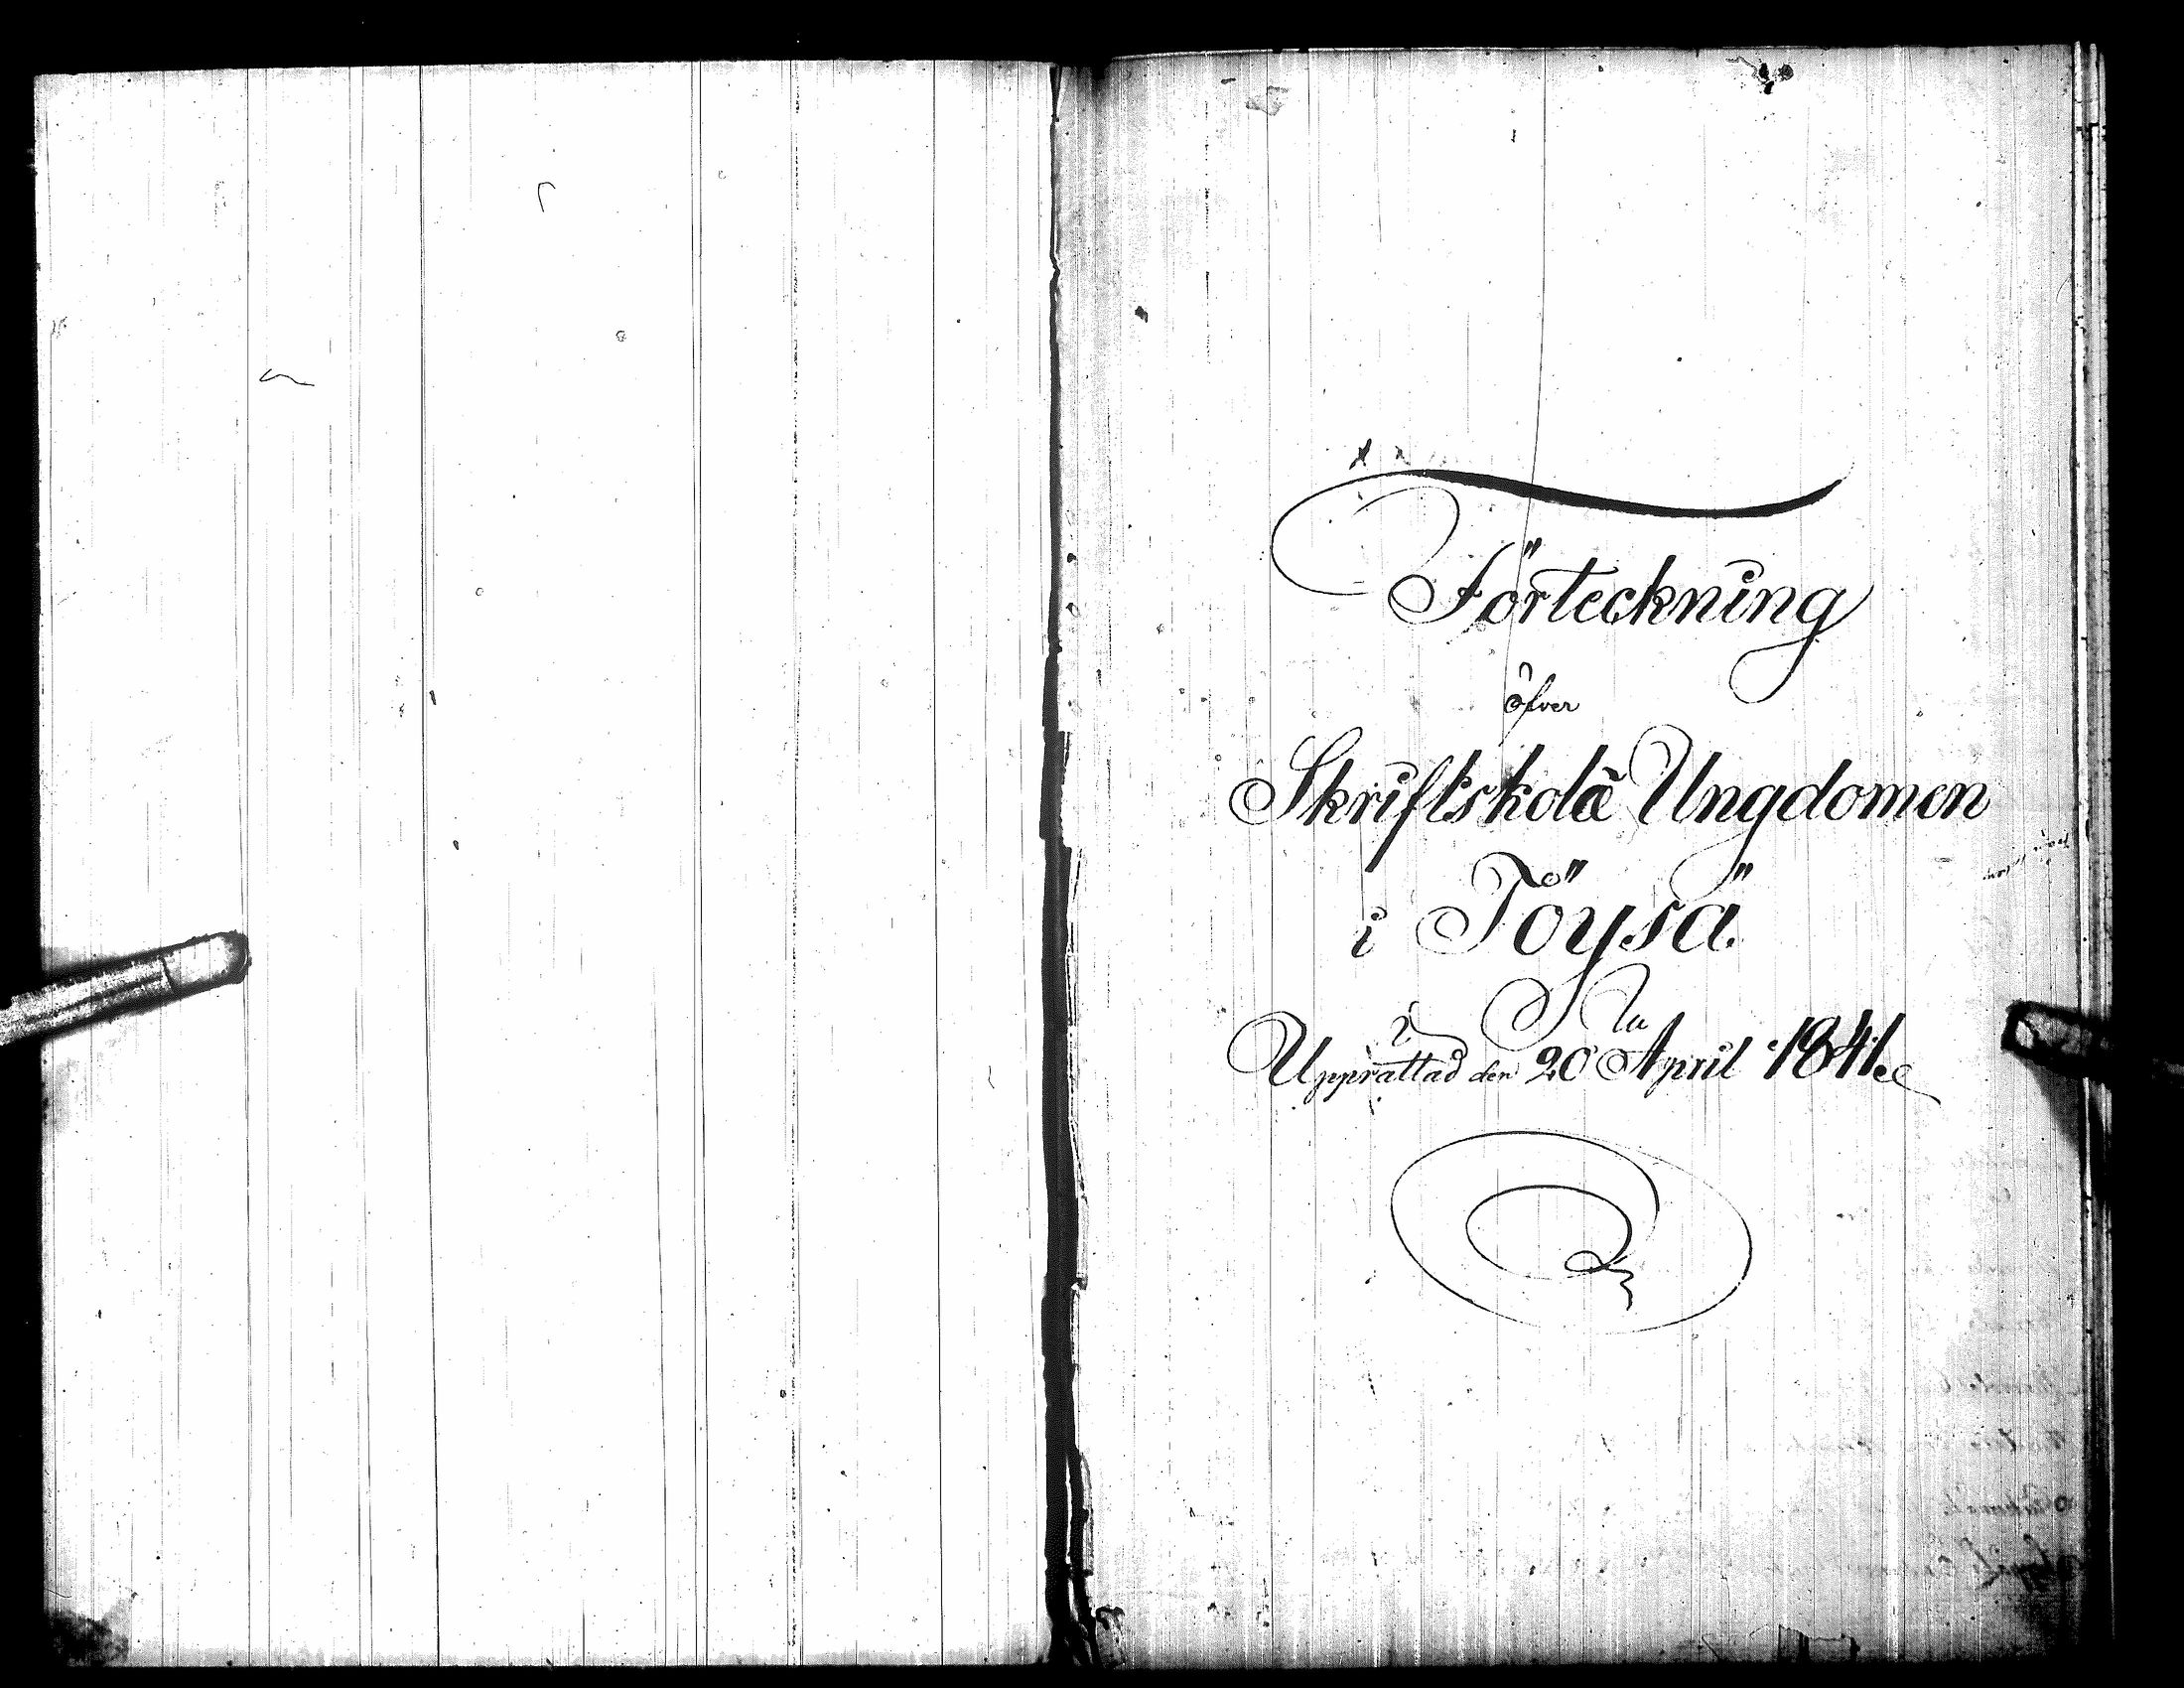 Förteckning
öfver
Skriftskolæ Ungdomen
i Töysä
Upprättad den 20 April 1841